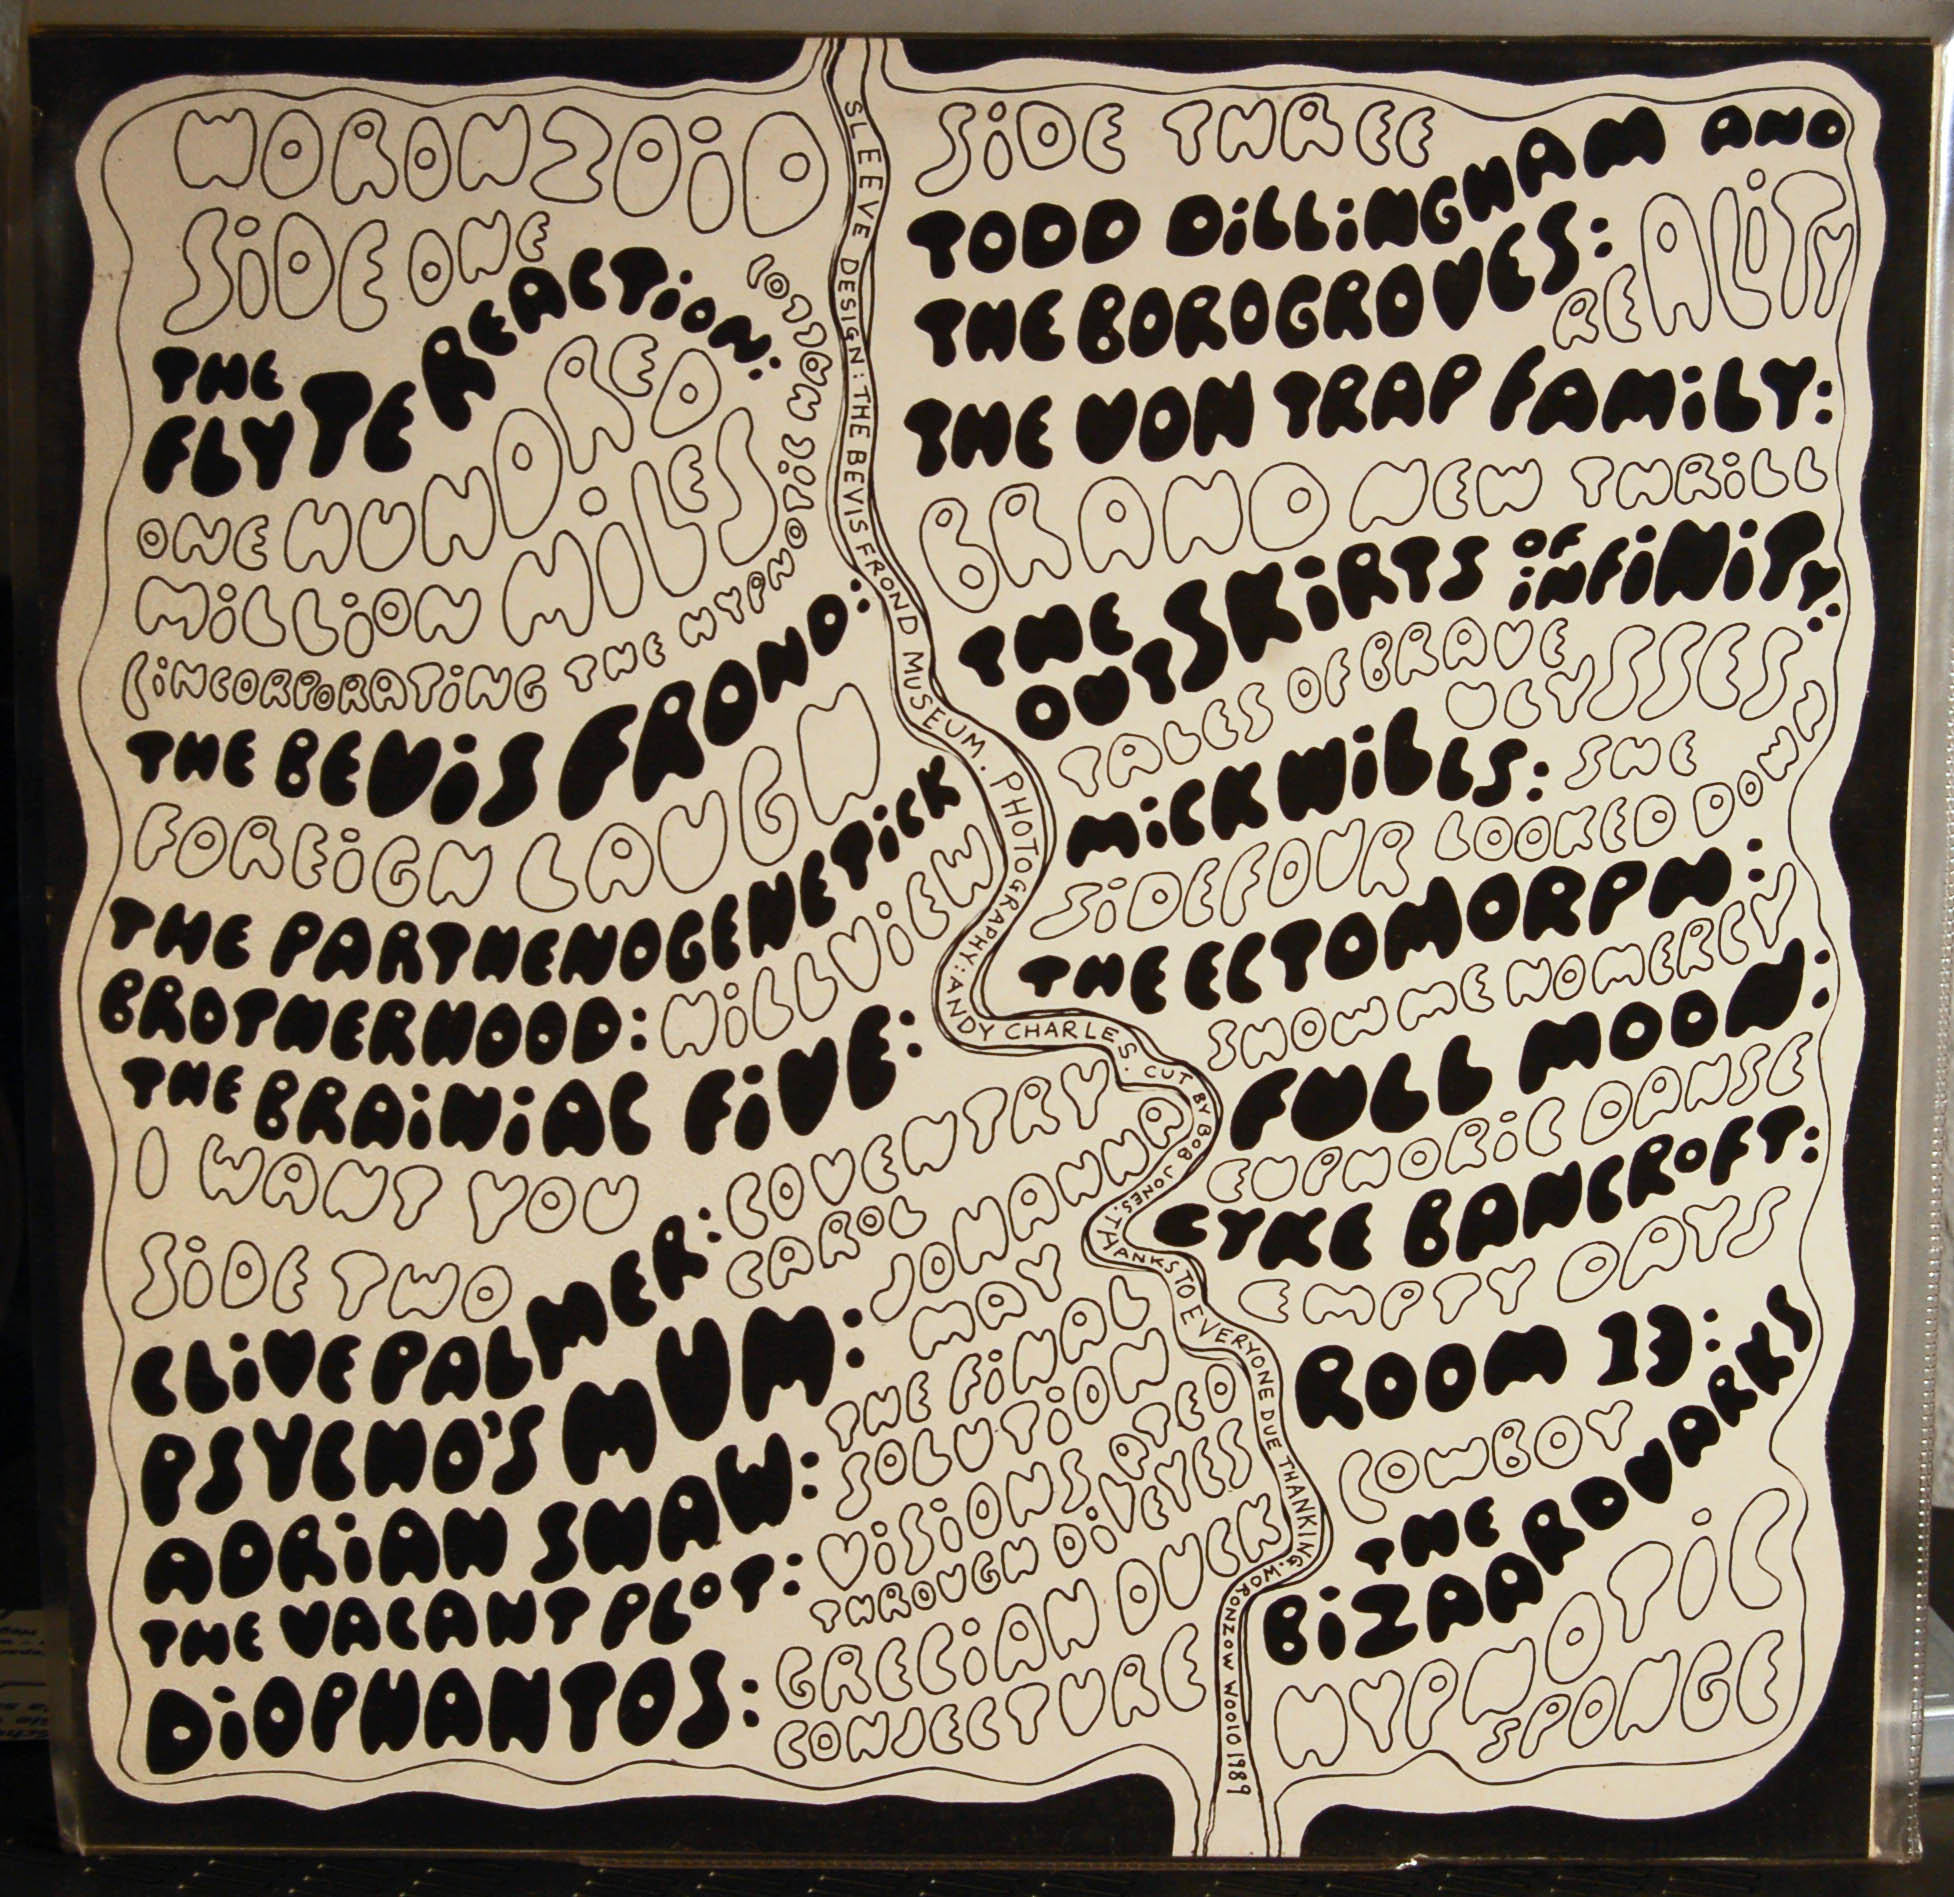 WORONZOID
SIDE ONE
THE
FLYTE REACTION:
ONE HUNDRED
MILLION MILES
(INCORPORATING THE HYPNOTIC
THE BEVIS FROND:
FOREIGN LAUGH
THE PARTHENOGENETICK
BROTHERHOOD: HILLVIEW
THE BRAINIAC FIVE:
I WANT YOU
SIDE TWO
CLIVE PALMER: COVENTRY
CAROL
PSYCHO'S MUM: JOHANNA
MAY
ADRIAN SHAW: THE FINAL
SOLUTION
THE VACANT PLOT: VISIONS
THROUGH DIVEYES
DIOPHANTOS: GRECIAN DUCK
CONJECTURE
SLEEVE DESIGN: THE BEVIS FROND MUSEUM. PHOTOGRAPHY: ANDY CHARLES. CUT BY BOB JONES. THANKS TO EVERYONE DUE THANKING. WORONZOW WOO10 1989
SIDE THREE
TODD DILLINGHAM AND
THE BOROGROVES: REALITY
THE VON TRAP FAMILY:
BRAND NEW THRILL
THE
OUTSKIRTS OF INFINITY:
TALES OF BRAVE
ULYSSES
MICK WILLS: SHE
LOOKED DOWN
SIDE FOUR
THE ECTOMORPH:
SHOW ME NO MERCY
FULL MOON:
EUPHORIC DANSE
CYKE BANCROFT:
EMPTY DAYS
ROOM 13:
COWBOY
THE
BIZAARDVARKS
HYPNOTIC
SPONGE